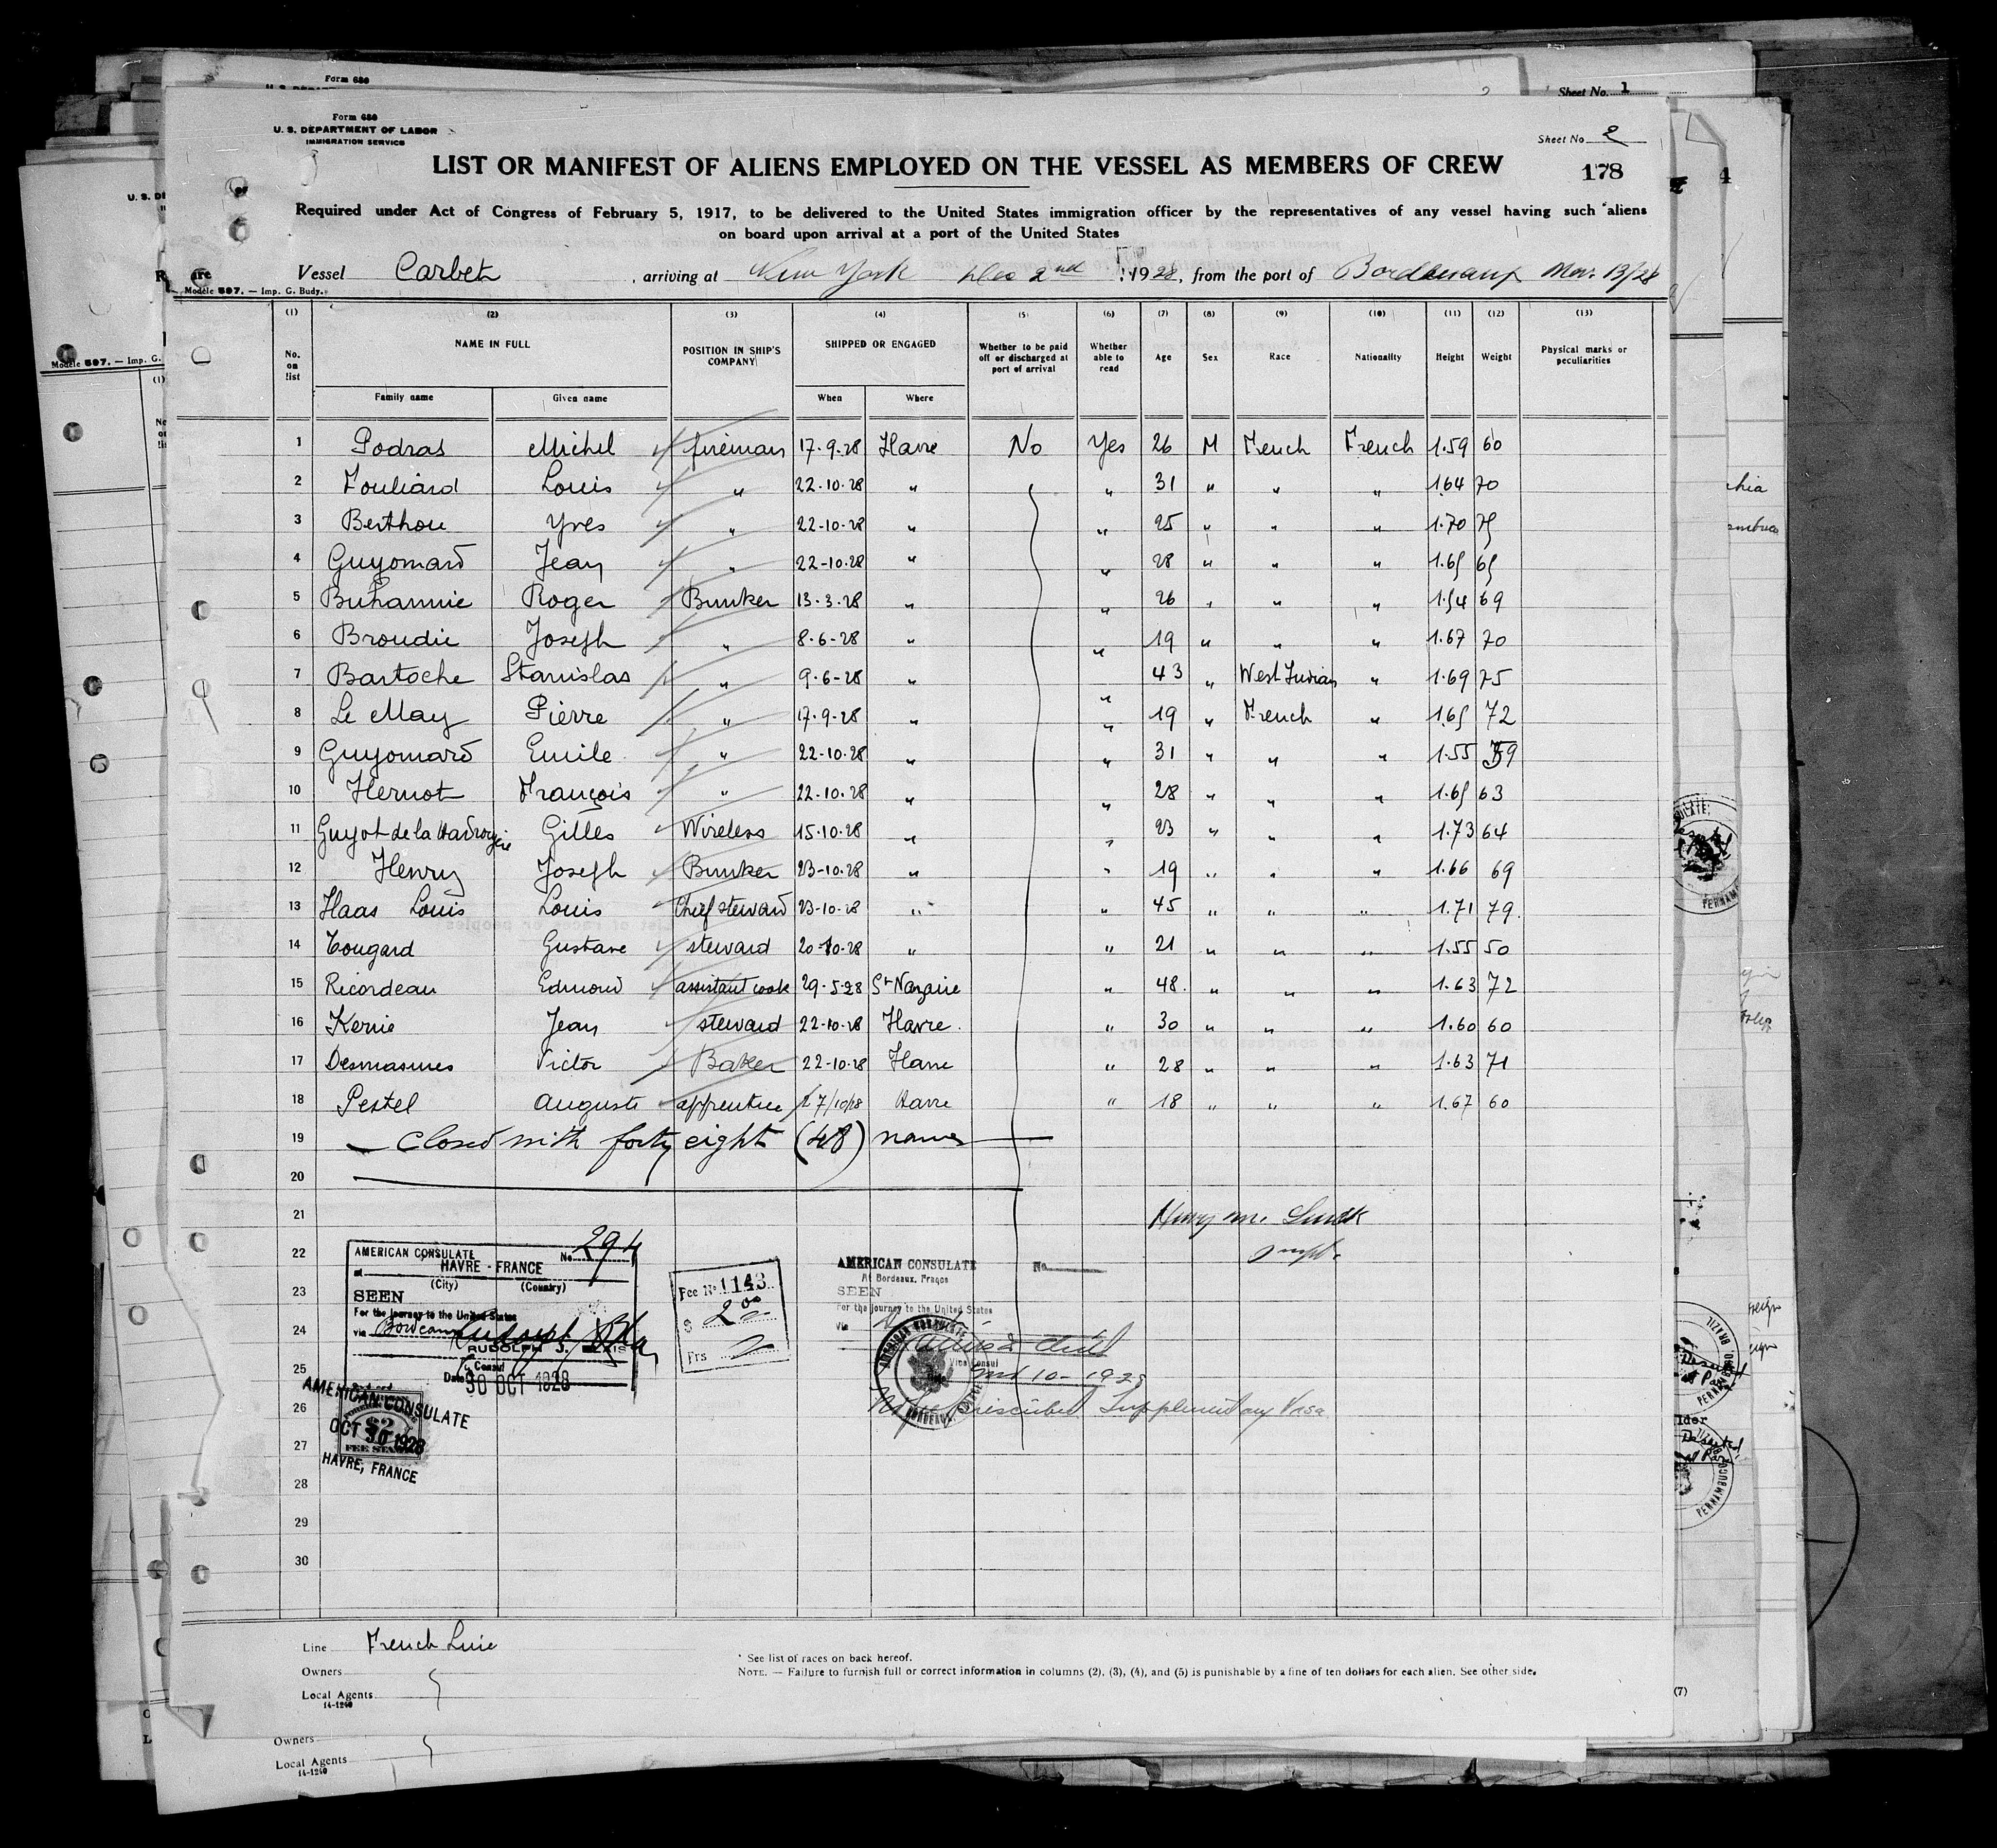 Form 680
Sheet No. 1
Form 680
U. S. DEPARTMENT OF LABOR
IMMIGRATION SERVICE
Sheet No 2
LIST OR MANIFEST OF ALIENS EMPLOYED ON THE VESSEL AS MEMBERS OF CREW
178
Required under Act of Congress of February 5, 1917, to be delivered to the United States immigration officer by the representatives of any vessel having such aliens
on board upon arrival at a port of the United States
Vessel Carbet, arriving at New York Dec 2nd, 1928, from the port of Bordeaux Nov. 13/28
Modèle 597. — Imp. G. Budy.
(1) (2) (3) (4) (5) (6) (7) (8) (9) (10) (11) (12) (13)
No. on list NAME IN FULL POSITION IN SHIP'S COMPANY SHIPPED OR ENGAGED Whether to be paid off or discharged at port of arrival Whether able to read Age Sex Race Nationality Height Weight Physical marks or peculiarities
Family name Given name When Where
1 Podras Michel fireman 17.9.28 Havre No Yes 26 M French French 1.59 60
2 Fouliard Louis " 22-10-28 " " 31 " " " 1.64 70
3 Berthou Yves " 22-10-28 " " 25 " " " 1.70 75
4 Guyomard Jean " 22-10-28 " " 28 " " " 1.65 65
5 Buhannic Roger Bunker 13.3.28 " " 26 " " " 1.54 69
6 Broudic Joseph " 8-6-28 " " 19 " " " 1.67 70
7 Bartoche Stanislas " 9-6-28 " " 43 " West Indian " 1.69 75
8 Le May Pierre " 17-9-28 " " 19 " French " 1.65 72
9 Guyomard Emile " 22-10-28 " " 31 " " " 1.55 59
10 Hernot François " 22-10-28 " " 28 " " " 1.65 63
11 Guyot de la Gilles Wireless 15-10-28 " " 23 " " " 1.73 64
12 Henry Joseph Bunker 23-10-28 " " 19 " " " 1.66 69
13 Haas Louis Louis Chief steward 23-10-28 " " 45 " " " 1.71 79
14 Tougard Gustave steward 20-10-28 " " 21 " " " 1.55 50
15 Ricordeau Edmond assistant cook 29-5-28 St Nazaire " 48 " " " 1.63 72
16 Kerrie Jean steward 22-10-28 Havre " 30 " " " 1.60 60
17 Desmasures Victor Baker 22-10-28 Havre " 28 " " " 1.63 71
18 Pestel Auguste apprentice 27/10/28 Havre " 18 " " " 1.67 60
19 Closed with forty eight (48) names
20
21
22
23
24
25
26
27
28
29
30
AMERICAN CONSULATE No. 294
at HAVRE - FRANCE
(City) (Country)
SEEN
For the journey to the United States
via Bordeaux
RUDOLPH J.
Consul
Date 30 OCT 1928
AMERICAN CONSULATE
OCT 30 1928
HAVRE, FRANCE
$2
FEE STAMP
Fee No 1143
$ 2.00
Frs
AMERICAN CONSULATE No.
At Bordeaux, France
SEEN
For the journey to the United States
via
Vice Consul
AMERICAN CONSULATE
BORDEAUX
No fee prescribed Supplementary Visa
Line French Line
Owners
Local Agents
14-1240
* See list of races on back hereof.
NOTE. — Failure to furnish full or correct information in columns (2), (3), (4), and (5) is punishable by a fine of ten dollars for each alien. See other side.
Owners
Local Agents
14-1240